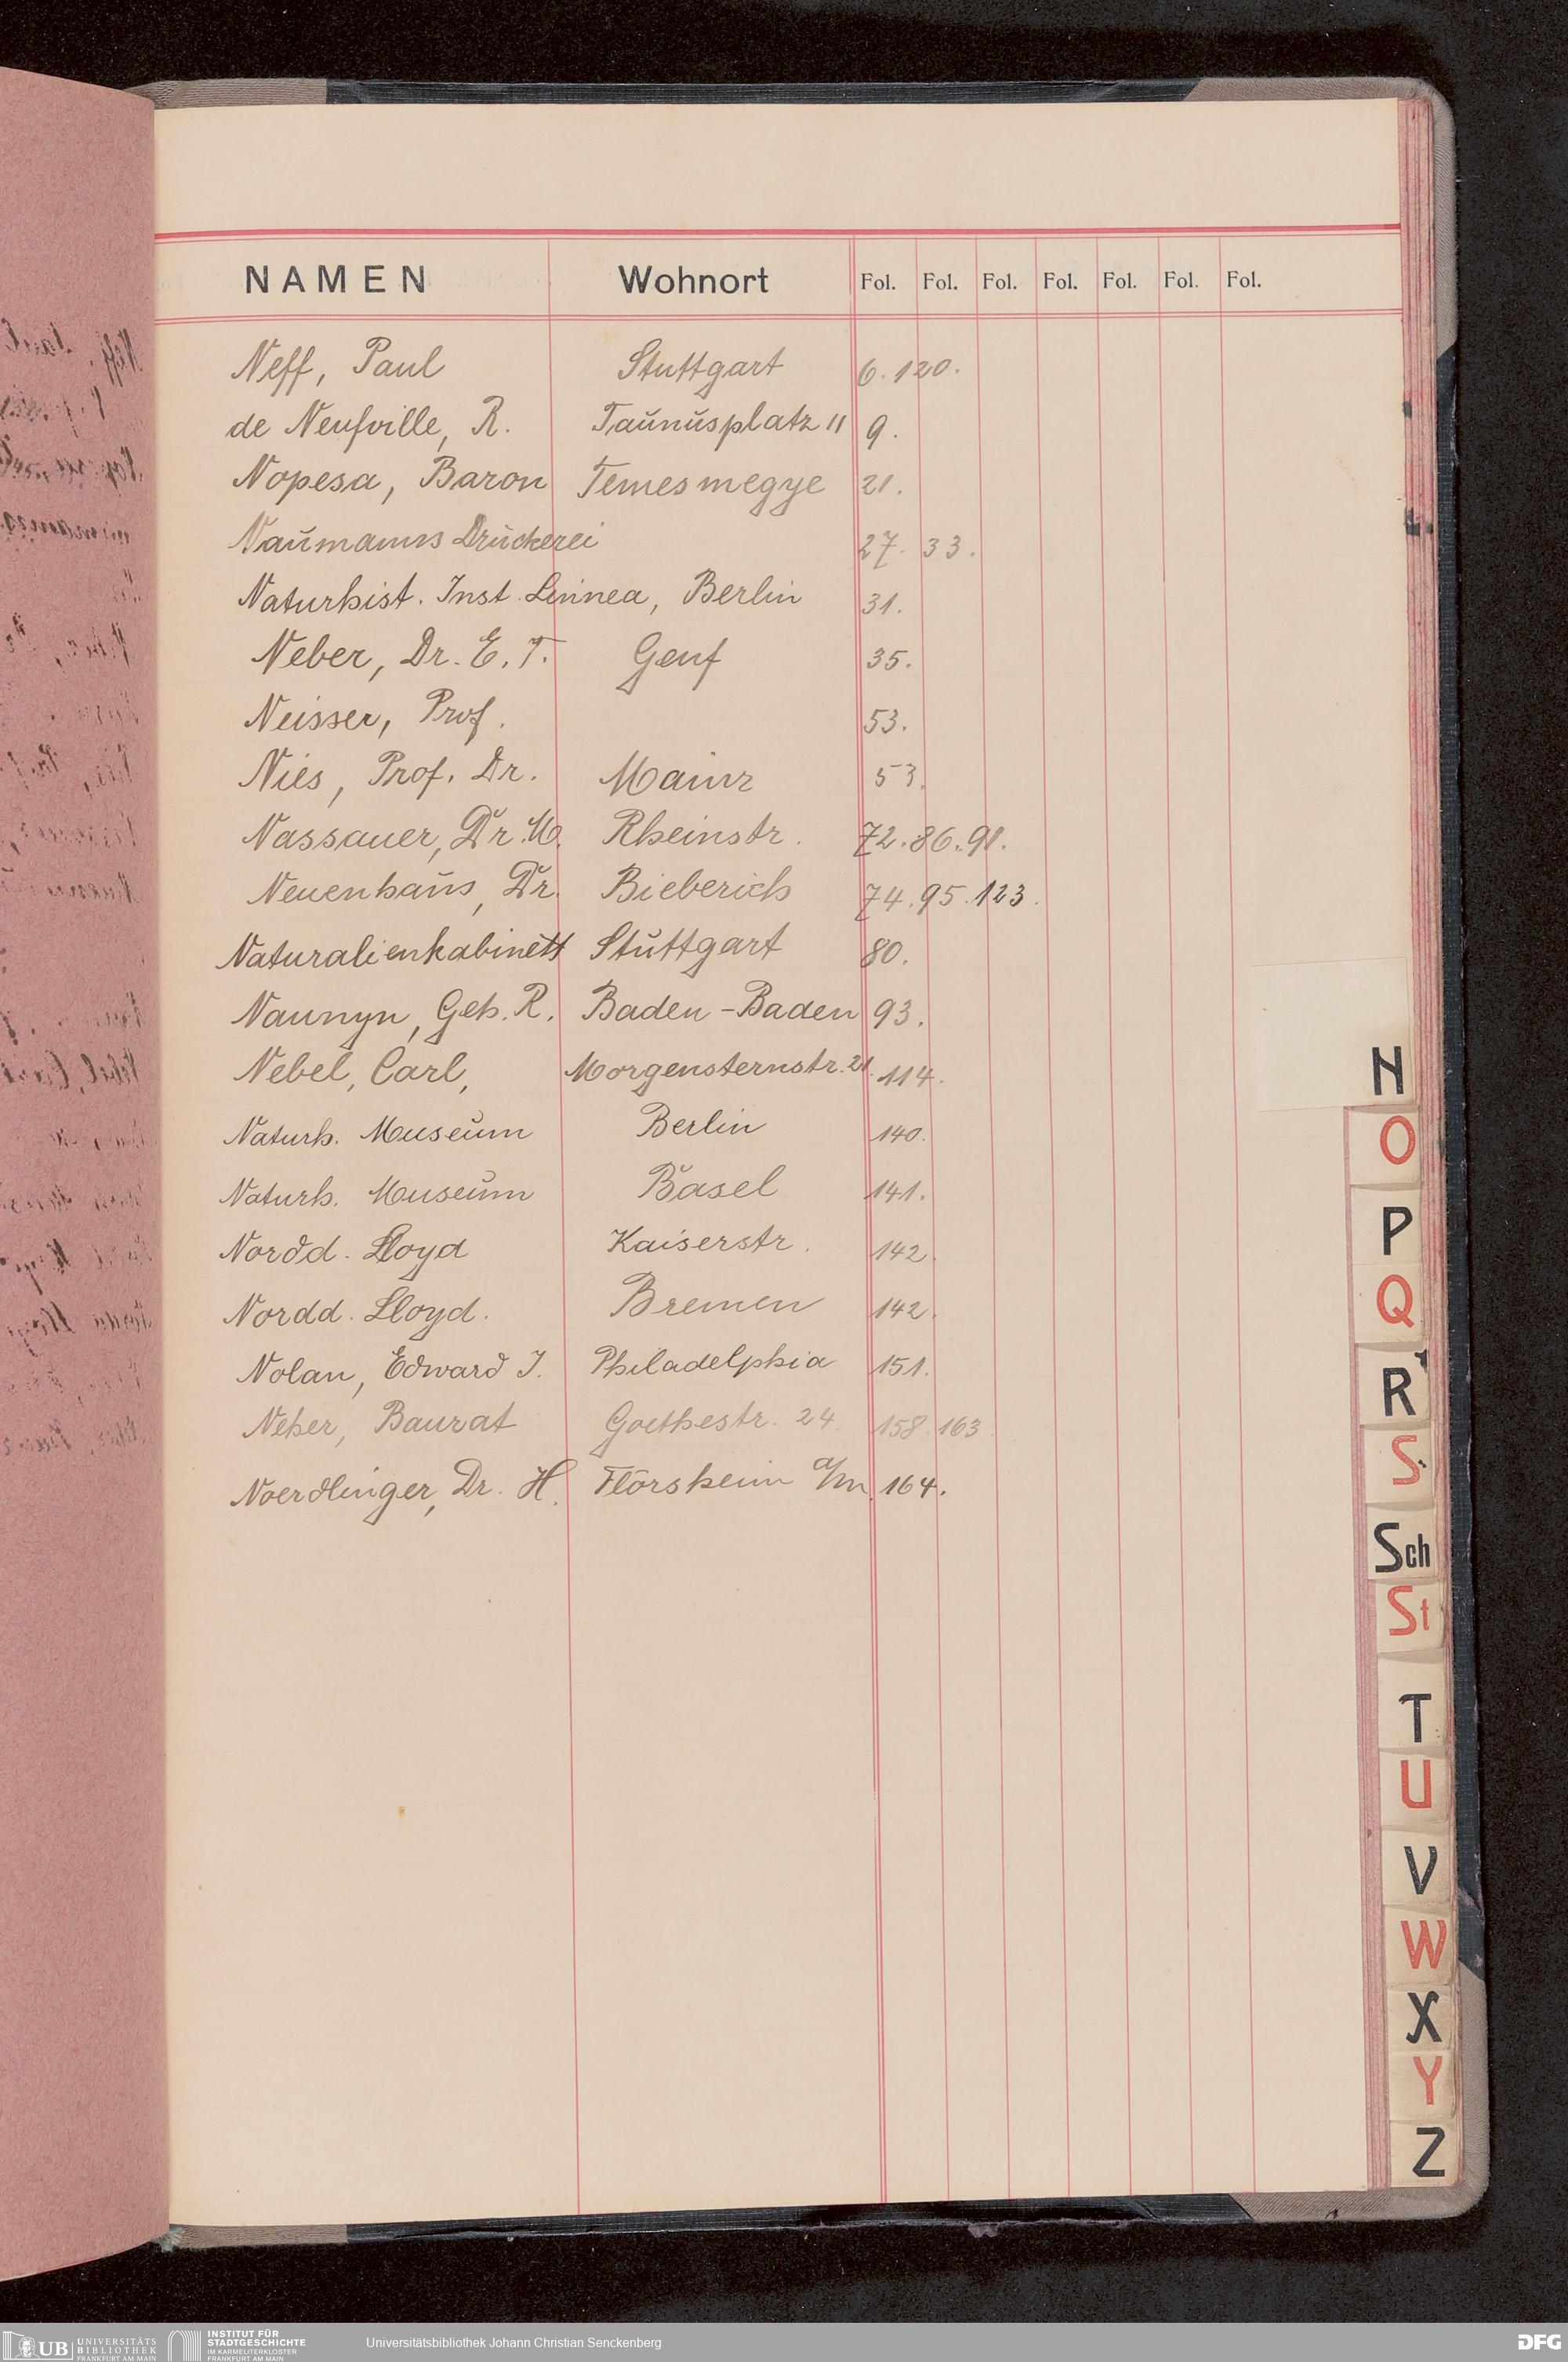 NAMEN Wohnort Fol. Fol. Fol. Fol. Fol. Fol. Fol.
Neff, Paul Stuttgart 6. 120.
de Neufville, R. Taunusplatz 11 9.
Nopesa, Baron Temesmegye 21.
Naumanns Druckerei 27. 33.
Naturhist. Inst. Linnea, Berlin 31.
Neber, Dr. E. T. Genf 35.
Neisser, Prof. 53.
Nies, Prof. Dr. Mainz 53.
Nassauer, Dr. M. Rheinstr. 72. 86. 91.
Neuenhaus, Dr. Bieberich 74. 95. 123.
Naturalienkabinett Stuttgart 80.
Naunyn, Geh. R. Baden-Baden 93.
Nebel, Carl, Morgensternstr. 21. 114.
Naturh. Museum Berlin 140.
Naturh. Museum Basel 141.
Nordd. Lloyd Kaiserstr. 142.
Nordd. Lloyd. Bremen 142.
Nolan, Edward J. Philadelphia 151.
Neher, Baurat Goethestr. 24. 158. 163
Noerdlinger, Dr. H. Flörsheim a/m. 164.
N
O
P
Q
R
S
Sch
St
T
U
V
W
X
Y
Z
UB UNIVERSITÄTS BIBLIOTHEK FRANKFURT AM MAIN
INSTITUT FÜR STADTGESCHICHTE IM KARMELITERKLOSTER FRANKFURT AM MAIN
Universitätsbibliothek Johann Christian Senckenberg
DFG